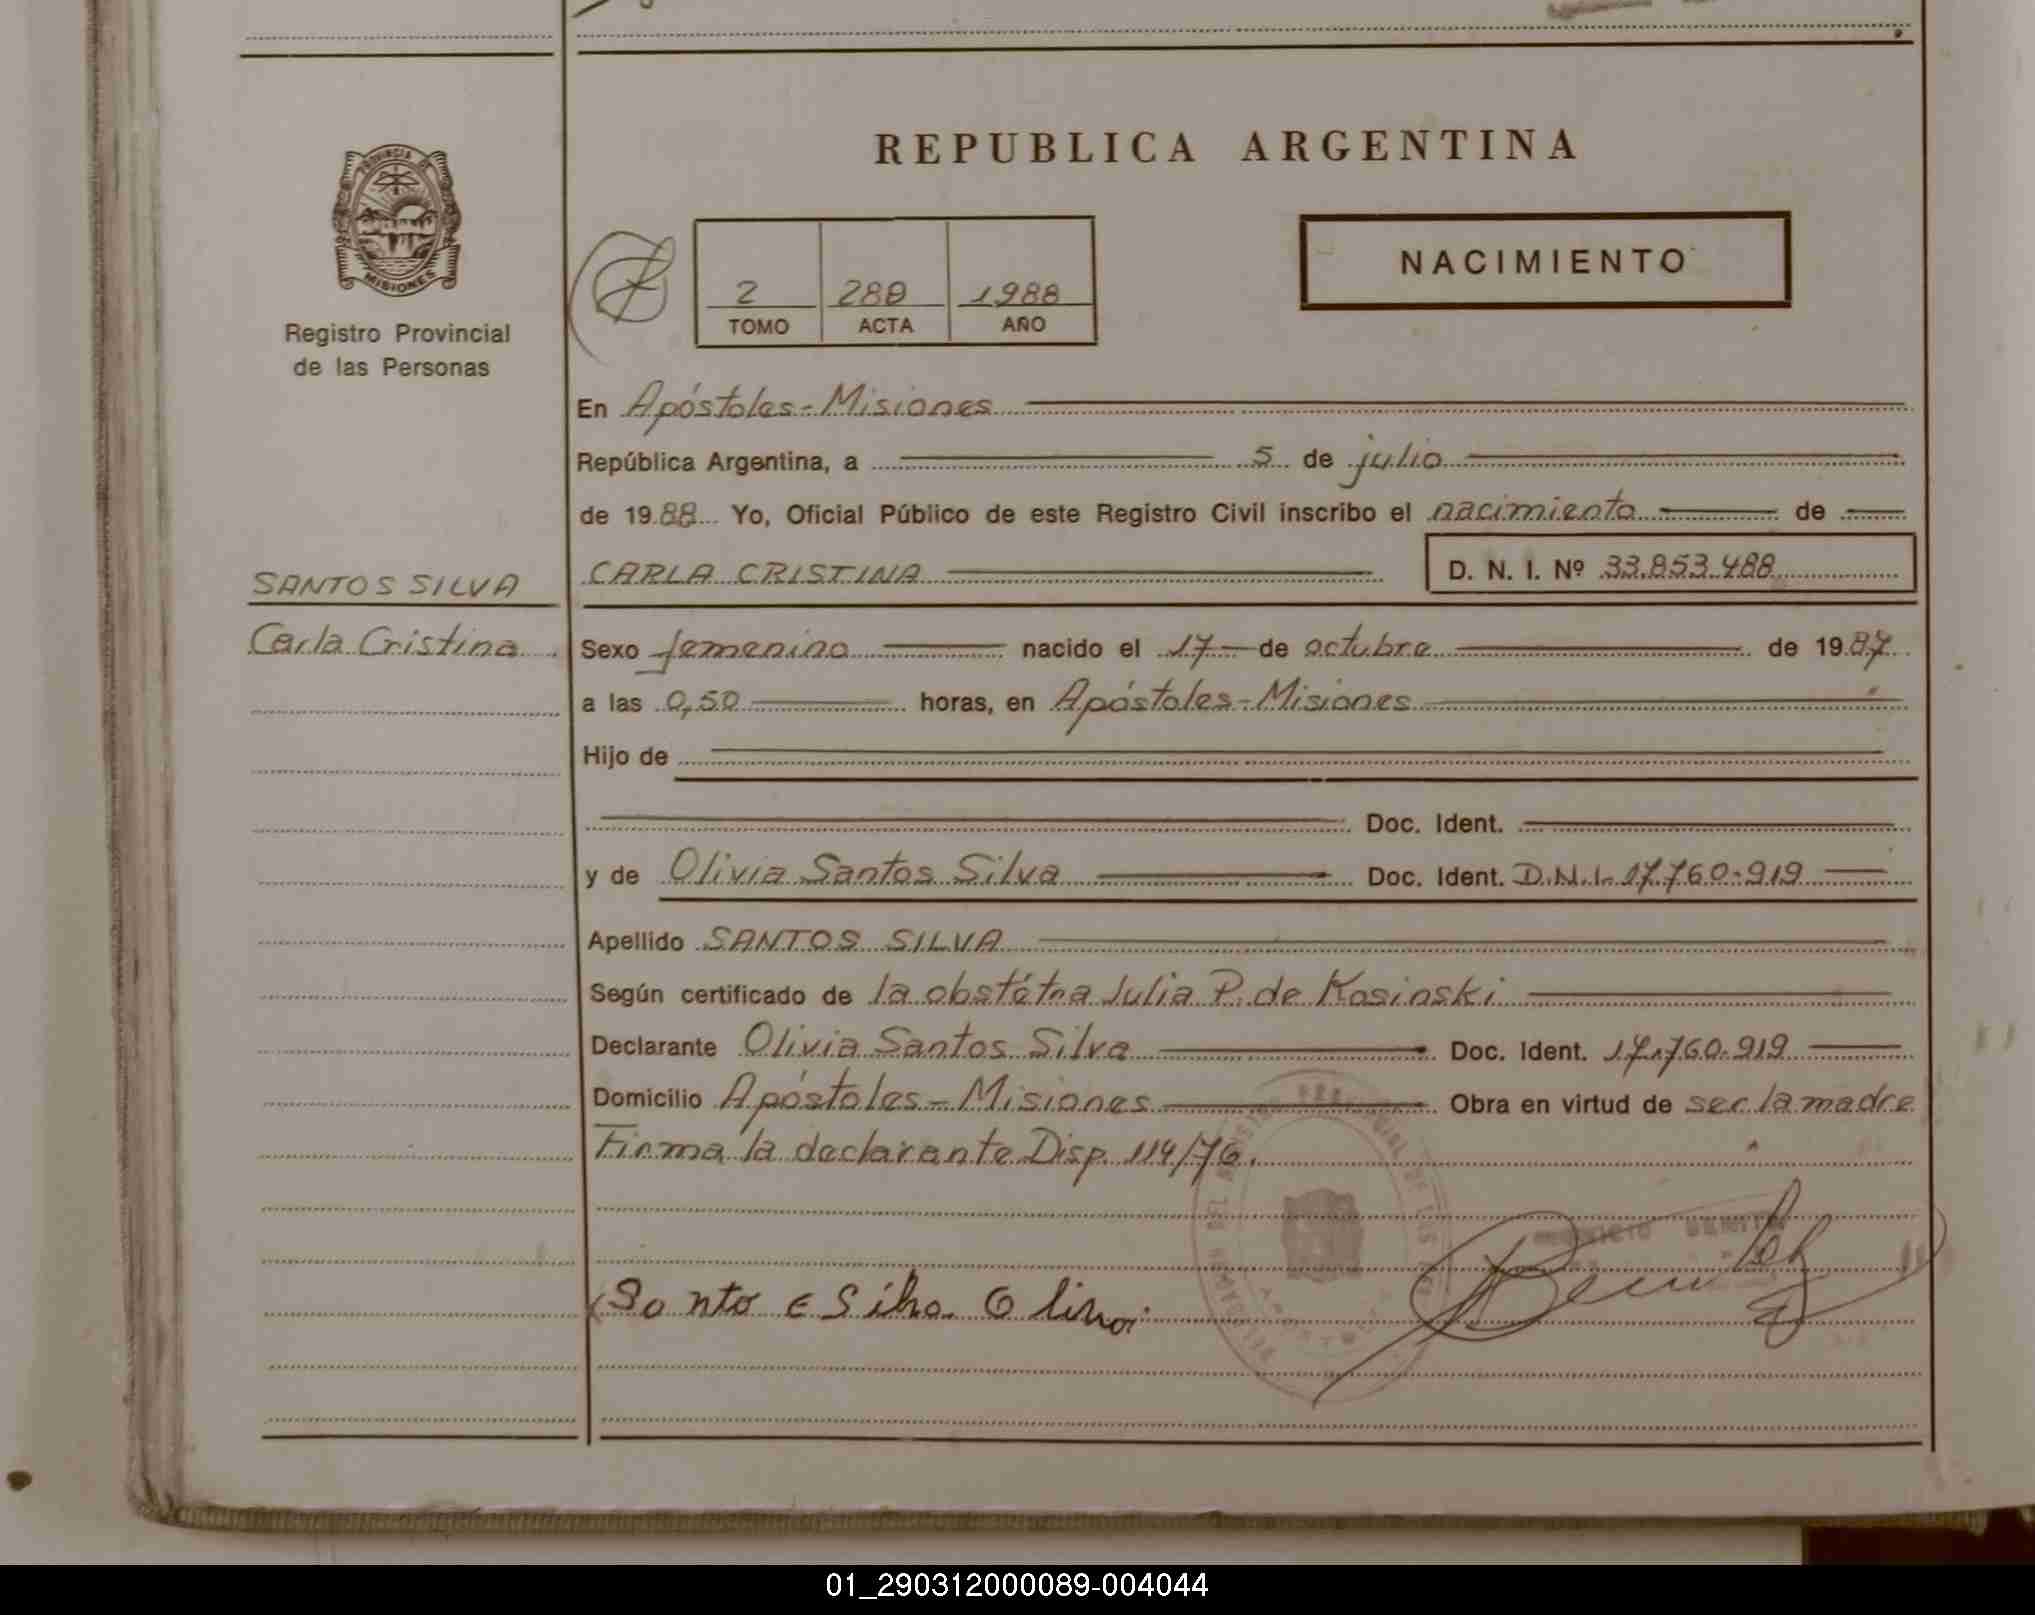 REPUBLICA ARGENTINA
PROVINCIA DE
MISIONES
Registro Provincial
de las Personas
2 280 1988
TOMO ACTA AÑO
NACIMIENTO
En Apóstoles-Misiones
República Argentina, a 5 de julio
de 1988 Yo, Oficial Público de este Registro Civil inscribo el nacimiento de
SANTOS SILVA
Carla Cristina
CARLA CRISTINA D. N. I. Nº 33.853.488
Sexo femenino nacido el 17 de octubre de 1987
a las 0,50 horas, en Apóstoles-Misiones
Hijo de
Doc. Ident.
y de Olivia Santos Silva Doc. Ident. D.N.I. 17.760.919
Apellido SANTOS SILVA
Según certificado de la obstétra Julia P. de Kosinski
Declarante Olivia Santos Silva Doc. Ident. 17.760.919
Domicilio Apóstoles-Misiones Obra en virtud de ser la madre
Firma la declarante Disp. 114/76.
Santo E Silva Oliva
01_290312000089-004044